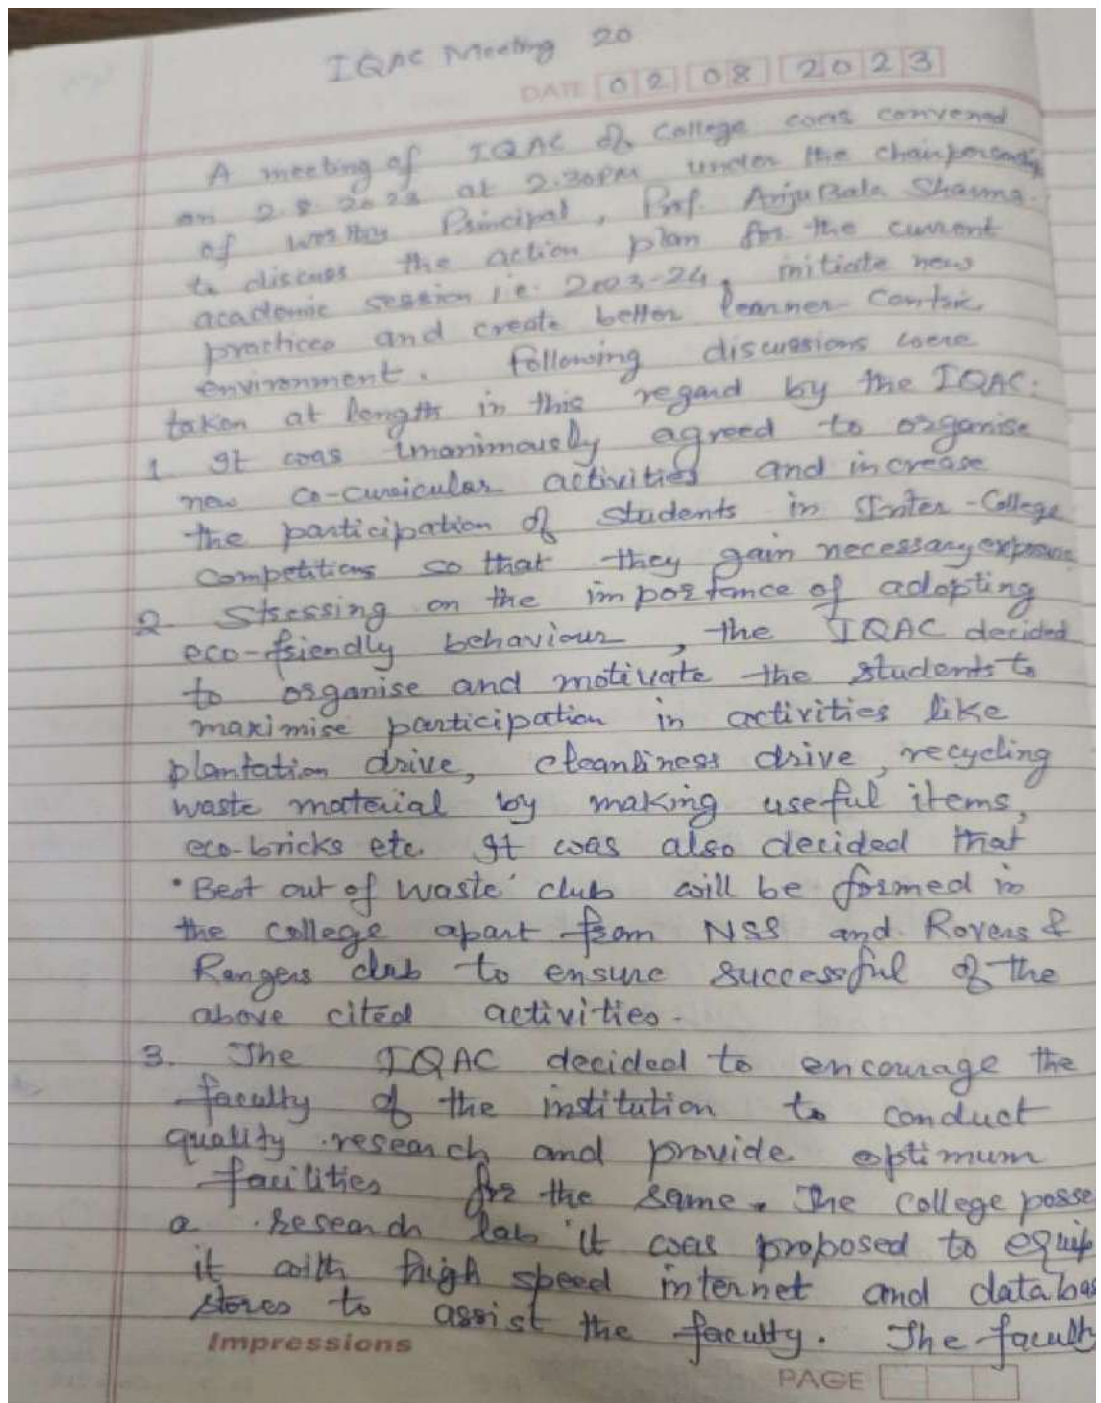 IQAC Meeting 20
DATE 02 08 2023
A meeting of IQAC of College was convened
on 2.8.2023 at 2.30PM under the
of worthy Principal, Prof. Anju Bala Sharma.
to discuss the action plan for the current
academic session i.e. 2023-24, initiate new
practices and create better learner
environment. Following discussions were
taken at length in this regard by the IQAC:
1 It was unanimously agreed to organise
new co-curricular activities and increase
the participation of students in Inter-College
competitions so that they gain necessary
2. Stressing on the importance of adopting
eco-friendly behaviour, the IQAC decided
to organise and motivate the students to
maximise participation in activities like
plantation drive, cleanliness drive, recycling
waste material by making useful items,
eco-bricks etc. It was also decided that
'Best out of waste' club will be formed in
the college apart from NSS and Rovers &
Rangers club to ensure successful of the
above cited activities.
3. The IQAC decided to encourage the
faculty of the institution to conduct
quality research and provide optimum
facilities for the same. The college posse
a research lab it was proposed to equip
it with high speed internet and databas
stores to assist the faculty. The facult
Impressions
PAGE